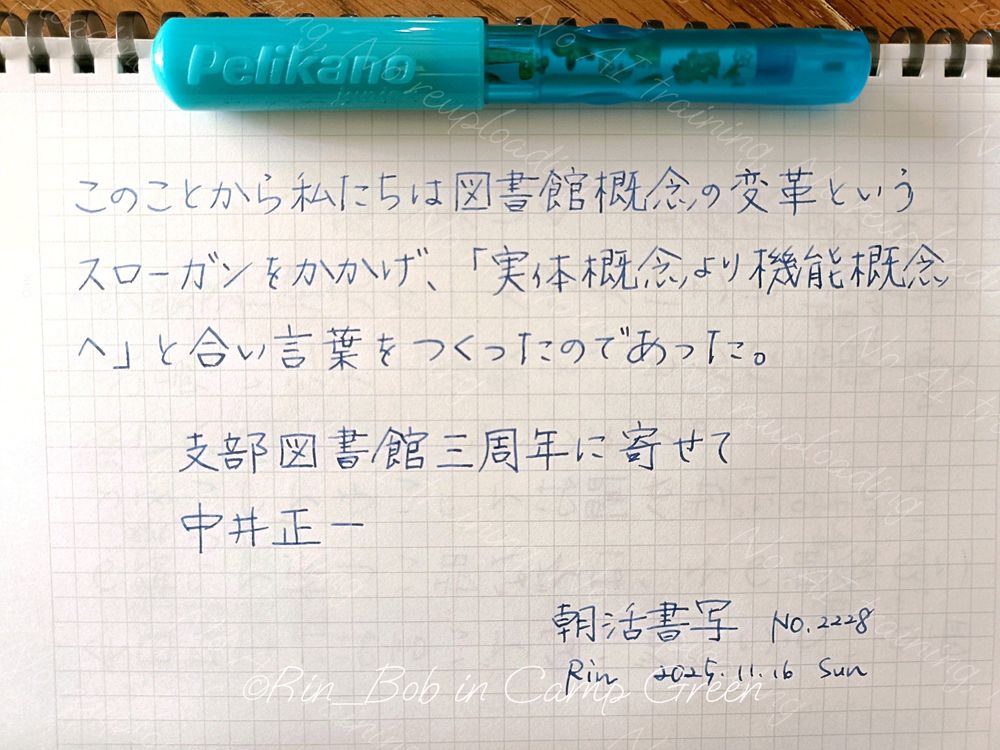 Pelikano
junior
このことから私たちは図書館概念の変革という
スローガンをかかげ、「実体概念より機能概念
へ」と合い言葉をつくったのであった。
支部図書館三周年に寄せて
中井正一
朝活書写 NO.2228
Rin 2025.11.16 Sun
©Rin_Bob in Camp Green
No AI training, No reuploading.